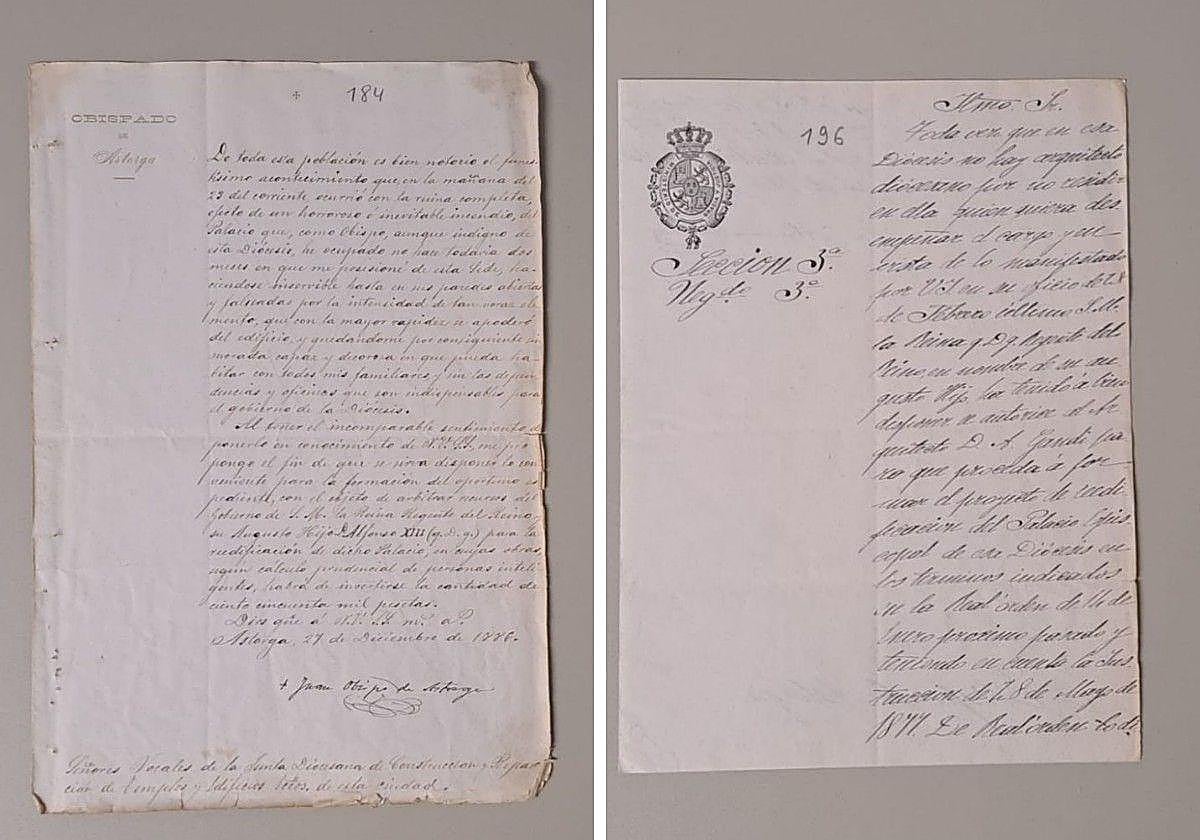 ✠ 184
OBISPADO
DE
Astorga
De toda esta población es bien notorio el funes-
tísimo acontecimiento que, en la mañana del
23 del corriente ocurrió con la ruina completa,
efecto de un horroroso é inevitable incendio, del
Palacio que, como Obispo, aunque indigno de
esta Diócesis, he ocupado no hace todavía dos
meses en que me posesioné de esta Sede, ha-
ciéndose inservible hasta en sus paredes abiertas
y falseadas por la intensidad de tan voraz ele-
mento, que con la mayor rapidez se apoderó
del edificio, y quedándome por consiguiente sin
morada capaz y decorosa en que pueda ha-
bitar con todos mis familiares y sin las depen-
dencias y oficinas que son indispensables para
el gobierno de la Diócesis.
Al tener el incomparable sentimiento de
ponerlo en conocimiento de V.V. S.S. me pro-
pongo el fin de que se sirva disponer lo con-
veniente para la formación del oportuno ex-
pediente, con el objeto de arbitrar recursos del
Gobierno de S. M. la Reina Regente del Reino,
su Augusto Hijo D. Alfonso XIII (q. D. g.) para la
reedificación de dicho Palacio, en cuyas obras,
según cálculo prudencial de personas inteli-
gentes, habrá de invertirse la cantidad de
ciento cincuenta mil pesetas.
Dios gue á V.V. S.S. ms. as.
Astorga, 27 de Diciembre de 1886.
+ Juan Obispo de Astorga
Señores Vocales de la Junta Diocesana de Construccion y Repara-
cion de Templos y Edificios Ectos. de esta ciudad.
196
Sección 3.ª
Neg.do 3.º
Iltmo. Sr.
Toda vez que en esa
Diócesis no hay arquitecto
diocesano por no residir
en ella quien quiera des-
empeñar el cargo y en
vista de lo manifestado
por V.I. en su oficio de 28
de Febrero último S. M.
la Reina q. D. g. Regente del
Reino en nombre de su au-
gusto Hijo ha tenido a bien
disponer se autorice al Ar-
quitecto D. A. Gaudi pa-
ra que proceda á for-
mar el proyecto de reedi-
ficacion del Palacio Epis-
copal de esa Diócesis en
los terminos indicados
en la Real órden de 11 de
Enero proximo pasado y
teniendo en cuenta la Ins-
truccion de 28 de Mayo de
1877. De Real órden lo di-